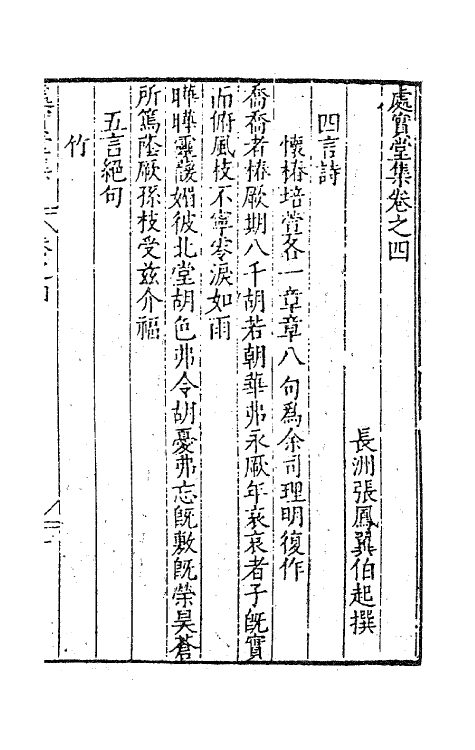 處實堂集卷之四
長洲張鳳翼伯起撰
四言詩
懷椿培萱各一章章八句爲余司理明復作
喬喬者椿厥期八千胡若朝華弗永厥年哀哀者子旣實
而俯風枝不寧零淚如雨
曄曄靈萱媚彼北堂胡色弗令胡憂弗忘旣敷旣榮昊蒼
所篤蔭厥孫枝受兹介福
五言絕句
竹